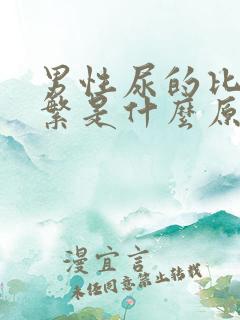 男性尿的比
繁是什麼原
漫宜言
未经同意禁止转载